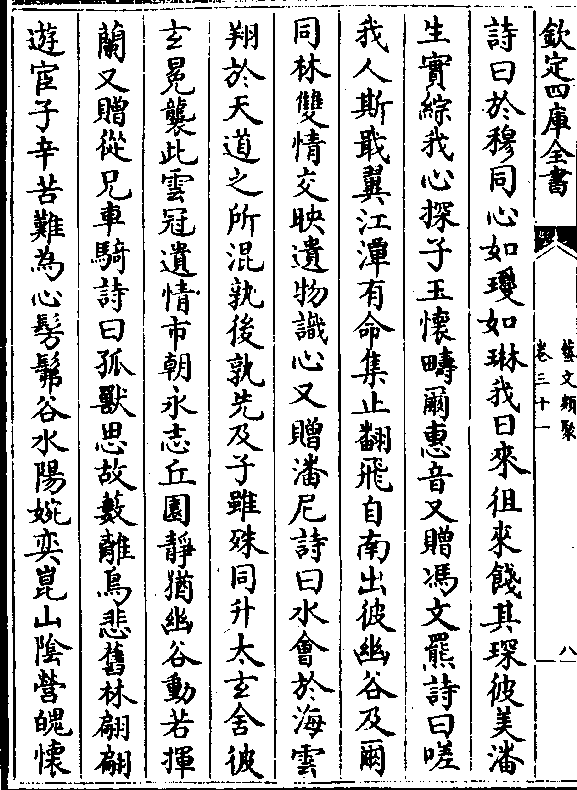 欽定四庫全書
藝文類聚
卷三十一
八
詩曰於穆同心如瓊如琳我日來徂來餞其琛彼美潘
生實綜我心探子玉懷疇爾惠音又贈馮文羆詩曰嗟
我人斯戢翼江潭有命集止翻飛自南出彼幽谷及爾
同林雙情交映遺物識心又贈潘尼詩曰水會於海雲
翔於天道之所混孰後孰先及子雖殊同升太玄舍彼
玄冕襲此雲冠遺情市朝永志丘園靜猶幽谷動若揮
蘭又贈從兄車騎詩曰孤獸思故藪離鳥悲舊林翩翩
遊宦子辛苦難為心髣髴谷水陽婉孌崑山陰營魄懷